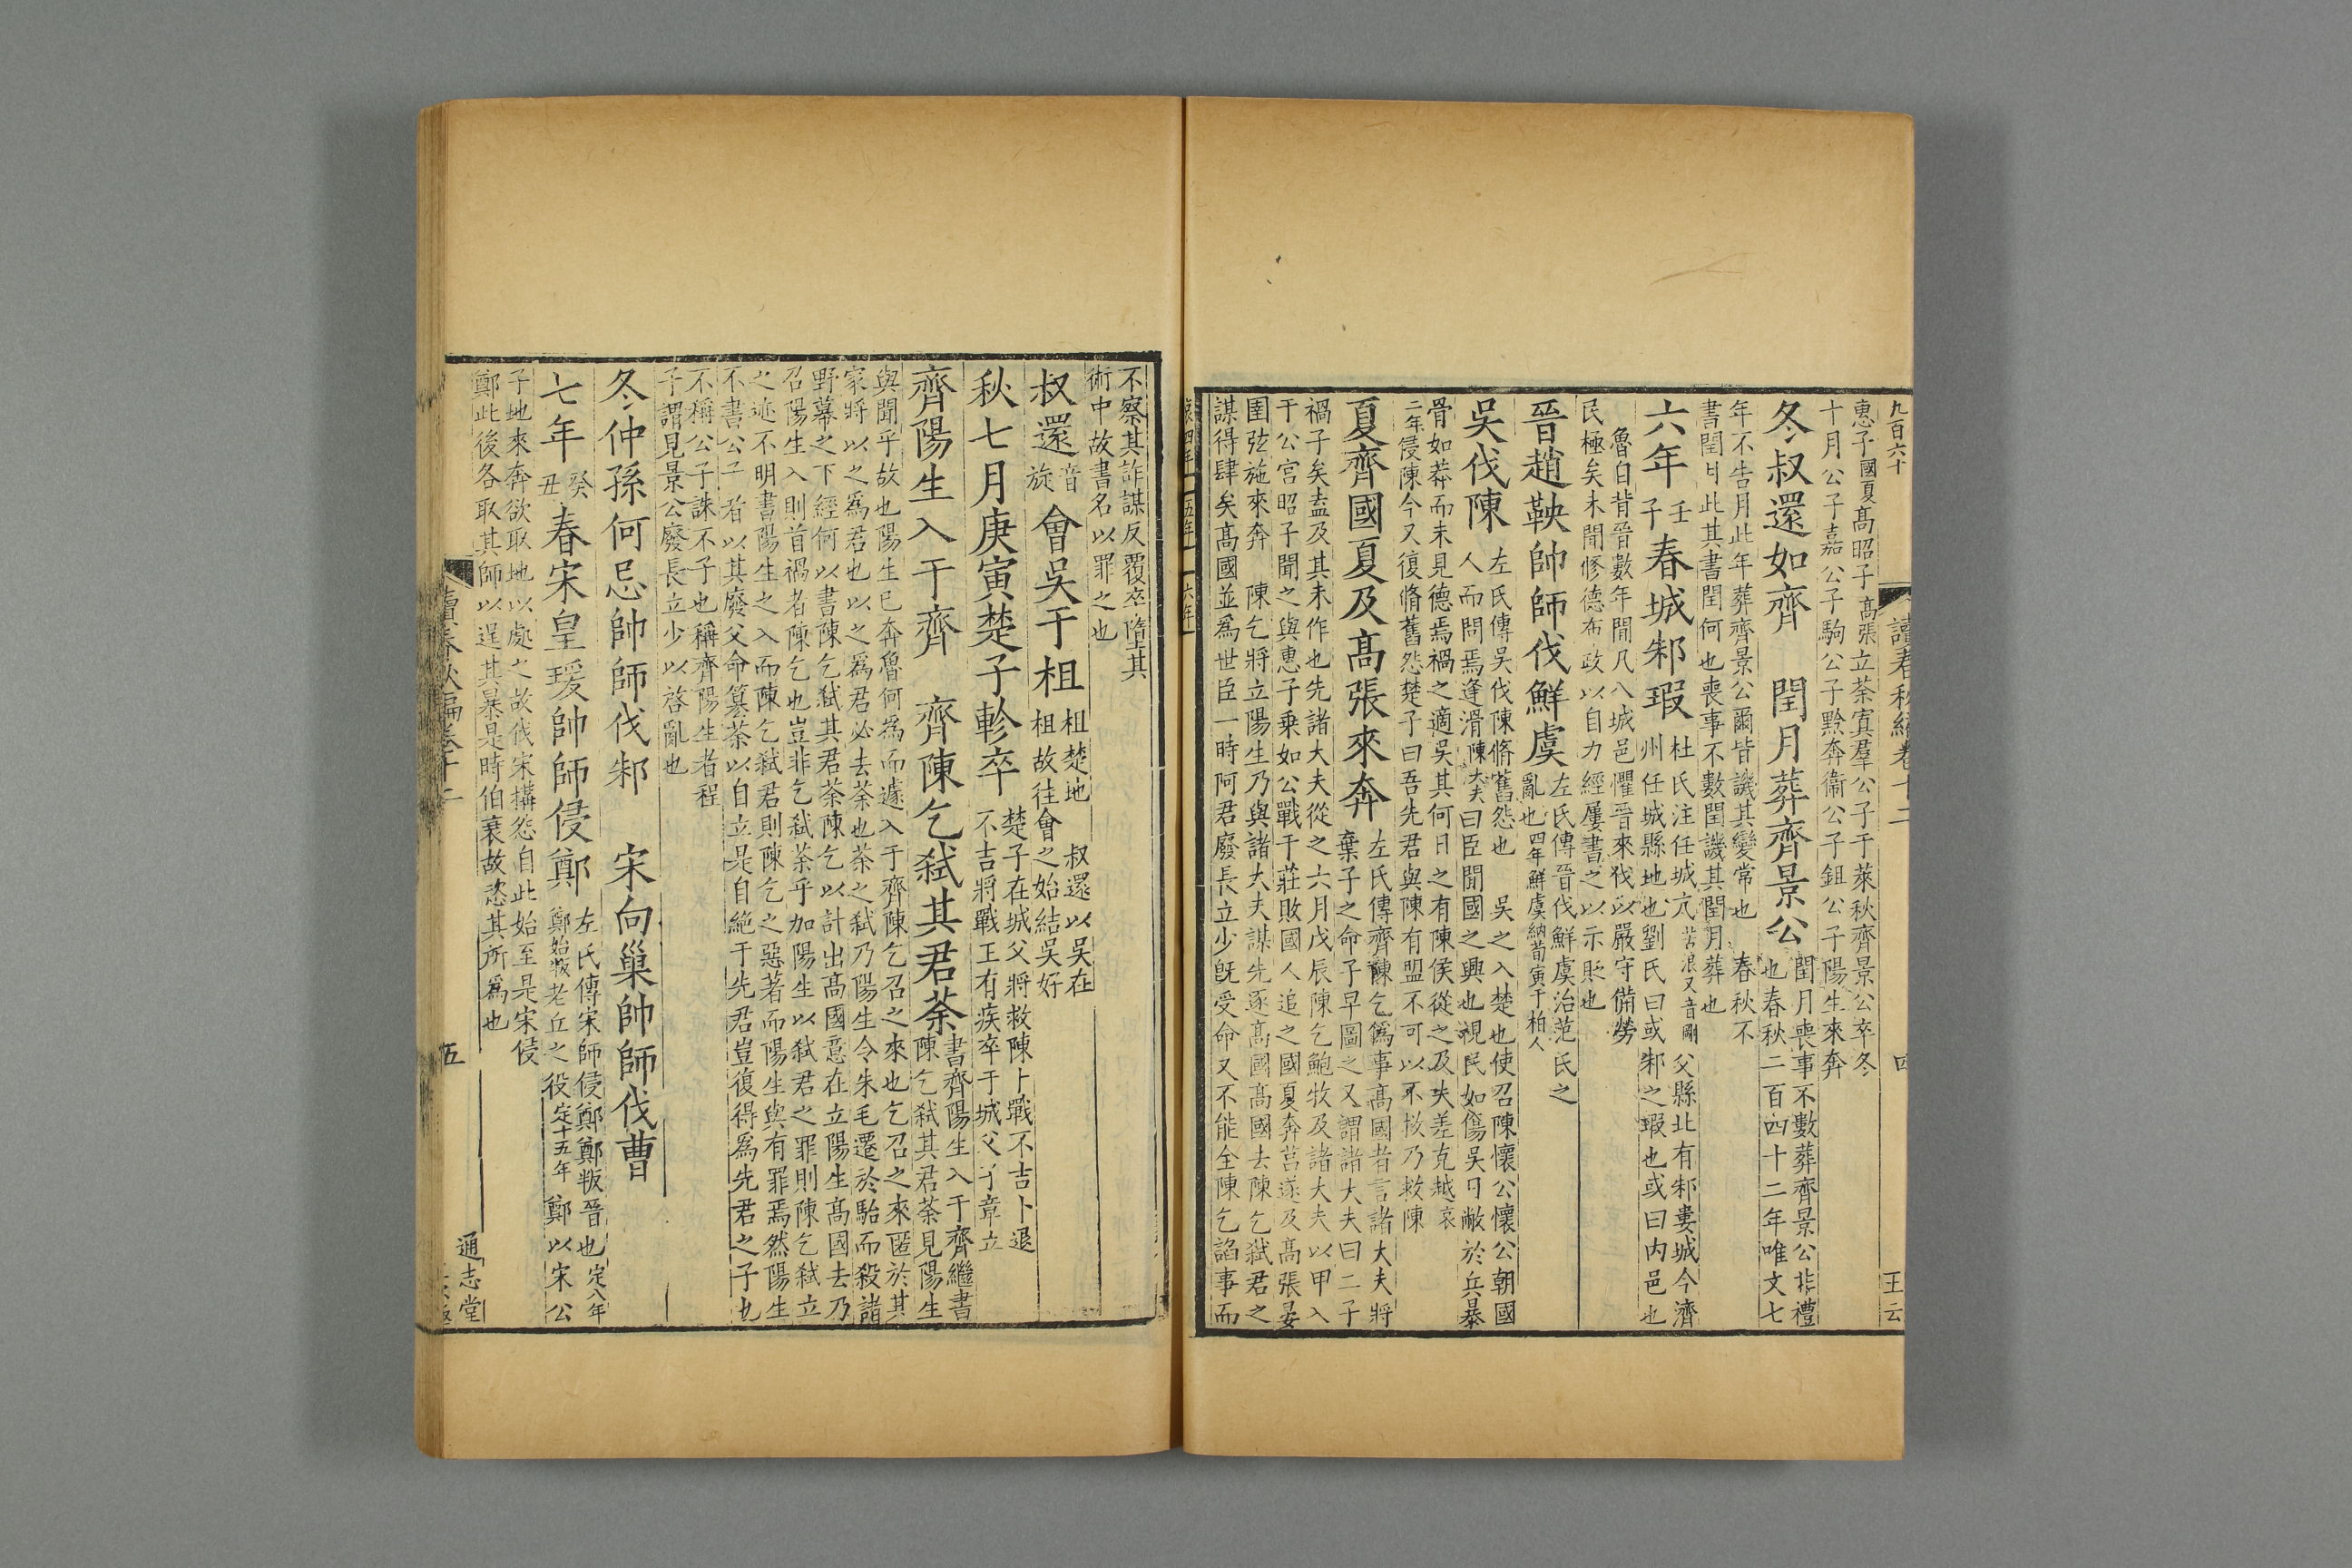 九百六十
讀春秋編卷十二
四
王云
惠子國夏高昭子高張立荼寘羣公子于萊秋齊景公卒冬
十月公子嘉公子駒公子黔奔衞公子鉏公子陽生來奔
冬叔還如齊 閏月葬齊景公
閏月喪事不數葬齊景公非禮
也春秋二百四十二年唯文七
年不告月此年葬齊景公爾皆譏其變常也 春秋不
書閏月此其書閏何也喪事不數閏譏其閏月葬也
六年壬子春城邾瑕
杜氏注任城亢苦浪又音剛父縣北有邾婁城今濟
州任城縣地也劉氏曰或邾之瑕也或曰内邑也
魯自背晉數年間凡八城邑懼晉來伐以嚴守備勞
民極矣未聞修德布政以自力經屢書之以示貶也
晉趙鞅帥師伐鮮虞
左氏傳晉伐鮮虞治范氏之
亂也四年鮮虞納荀寅于柏人
吳伐陳
左氏傳吳伐陳脩舊怨也 吳之入楚也使召陳懷公懷公朝國
人而問焉逢滑陳大夫曰臣聞國之興也視民如傷吳日敝於兵暴
骨如莽而未見德焉禍之適吳其何日之有陳侯從之及夫差克越哀
二年侵陳今又復脩舊怨楚子曰吾先君與陳有盟不可以不救乃救陳
夏齊國夏及高張來奔
左氏傳齊陳乞僞事高國者言諸大夫將
棄子之命子早圖之又謂諸大夫曰二子
禍子矣盍及其未作也先諸大夫從之六月戊辰陳乞鮑牧及諸大夫以甲入
于公宮昭子聞之與惠子乘如公戰于莊敗國人追之國夏奔莒遂及高張晏
圉弦施來奔 陳乞將立陽生乃與諸大夫謀先逐高國高國去陳乞弑君之
謀得肆矣高國並爲世臣一時阿君廢長立少旣受命又不能全陳乞謟事而
哀四年 五年 六年
不察其詐謀反覆卒墮其
術中故書名以罪之也
叔還音旋會吳于柤
柤楚地 叔還以吳在
柤故往會之始結吳好
秋七月庚寅楚子軫卒
楚子在城父將救陳卜戰不吉卜退
不吉將戰王有疾卒于城父子章立
齊陽生入于齊 齊陳乞弑其君荼
書齊陽生入于齊繼書
陳乞弑其君荼見陽生
與聞乎故也陽生已奔魯何爲而遽入于齊陳乞召之來也乞召之來匿於其
家將以之爲君也以之爲君必去荼也荼之弑乃陽生令朱毛遷於駘而殺諸
野幕之下經何以書陳乞弑其君荼陳乞以計出高國意在立陽生高國去乃
召陽生入則首禍者陳乞也豈非乞弑荼乎加陽生以弑君之罪則陳乞弑立
之迹不明書陽生之入而陳乞弑君則陳乞之惡著而陽生與有罪焉然陽生
不書公子者以其廢父命簒荼以自立是自絶于先君豈復得爲先君之子也
不稱公子誅不子也稱齊陽生者程
子謂見景公廢長立少以啓亂也
冬仲孫何忌帥師伐邾 宋向巢帥師伐曹
七年癸丑春宋皇瑗帥師侵鄭
左氏傳宋師侵鄭鄭叛晉也定八年
鄭始叛老丘之役定十五年鄭以宋公
子地來奔欲取地以處之故伐宋搆怨自此始至是宋侵
鄭此後各取其師以逞其暴是時伯衰故恣其所爲也
讀春秋編卷十二
五
通志堂